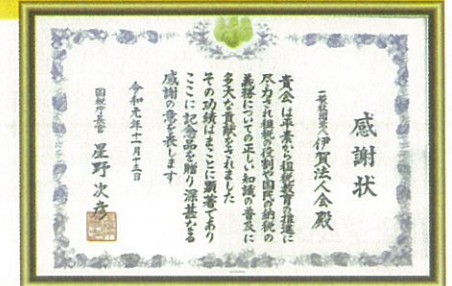 感謝状
一般社団法人伊賀法人会殿
貴会は平素から租税教育の推進に
尽力され租税の役割や国民の納税の
義務についての正しい知識の普及に
多大な貢献をされました
その功績はまことに顕著であり
ここに記念品を贈り深甚なる
感謝の意を表します
令和元年十一月十五日
国税庁長官 星野次彦